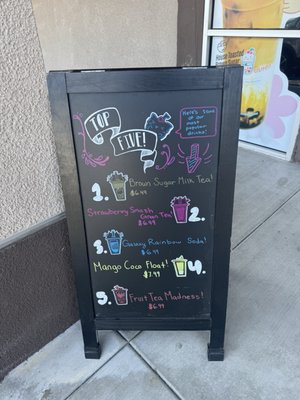 House Roasted
TOP
FIVE!
Here's some
of our most
popular
drinks!
1. Brown Sugar Milk Tea!
$6.99
Strawberry Smash
Green Tea! 2.
$6.99
3. Galaxy Rainbow Soda!
$6.99
Mango Coco Float! 4.
$7.99
5. Fruit Tea Madness!
$6.99